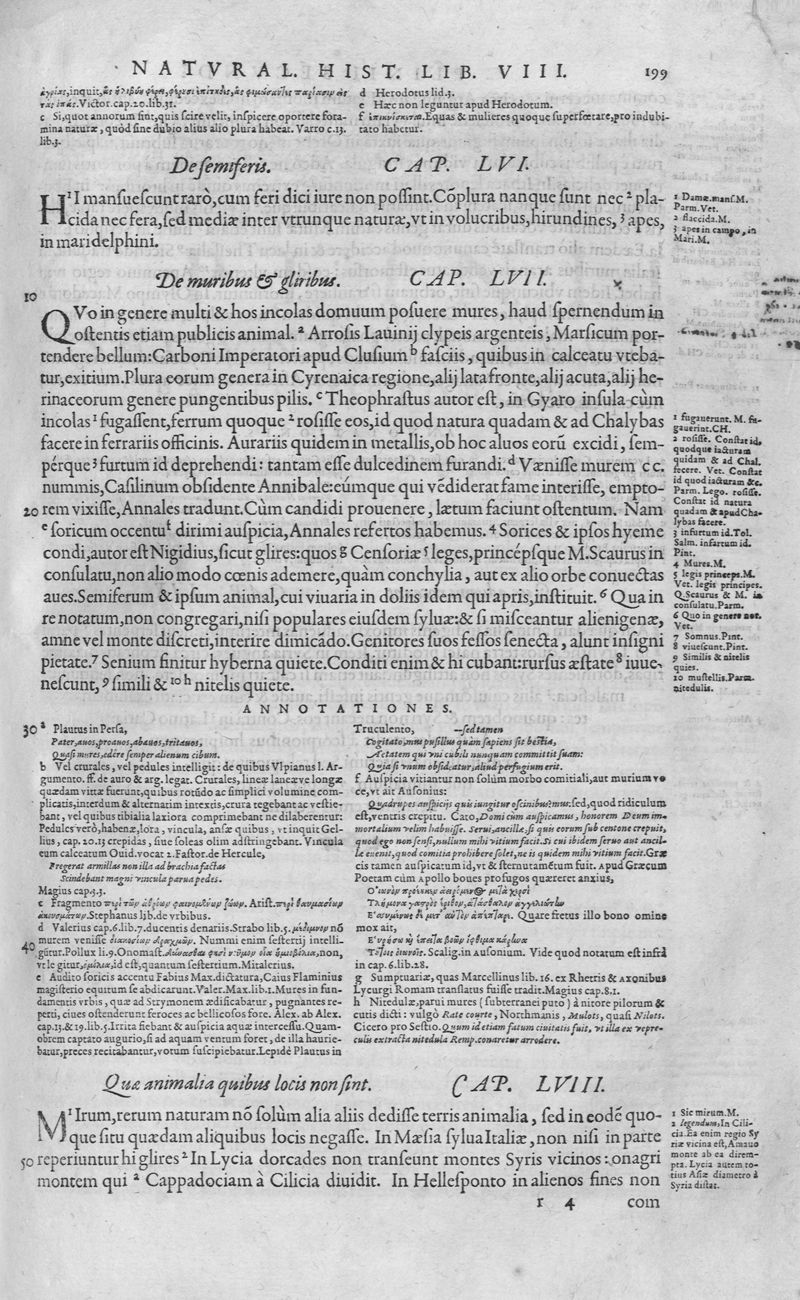 NATVRAL. HIST. LIB. VIII. 199
tas ἱπάς. Victor. cap. 20. lib. 31.
c Si, quot annorum sint, quis scire velit, inspicere oportere fora-
mina naturæ, quòd sine dubio alius alio plura habeat. Varro c. 13.
lib. 3.
d Herodotus lid. 3.
e Hæc non leguntur apud Herodotum.
f Equas & mulieres quoque superfœtare, pro indubi-
tato habetur.
De semiferis. CAP. LVI.
HI ¹ mansuescunt rarò, cum feri dici iure non possint. Cõplura nanque sunt nec ² pla-
cida nec fera, sed mediæ inter vtrunque naturæ, vt in volucribus, hirundines, ³ apes,
in mari delphini.
1 Damæ. mansf. M.
Parm. Vet.
2 flaccida. M.
3 apes in campo, in
Mari. M.
De muribus & gliribus. CAP. LVII.
10
QVo in genere multi & hos incolas domuum posuere mures, haud spernendum in
ostentis etiam publicis animal. ª Arrosis Lauinij clypeis argenteis, Marsicum por-
tendere bellum: Carboni Imperatori apud Clusium ᵇ fasciis, quibus in calceatu vteba-
tur, exitium. Plura eorum genera in Cyrenaica regione, alij lata fronte, alij acuta, alij he-
rinaceorum genere pungentibus pilis. ᶜ Theophrastus autor est, in Gyaro insula cùm
incolas ¹ fugassent, ferrum quoque ² rosisse eos, id quod natura quadam & ad Chalybas
facere in ferrariis officinis. Aurariis quidem in metallis, ob hoc aluos eorũ excidi, sem-
pérque ³ furtum id deprehendi: tantam esse dulcedinem furandi. ᵈ Væniſſe murem cc.
nummis, Casilinum obsidente Annibale: eúmque qui vẽdiderat fame interisse, empto-
20 rem vixisse, Annales tradunt. Cùm candidi prouenere, lætum faciunt ostentum. Nam
ᵉ soricum occentu ᶠ dirimi auspicia, Annales refertos habemus. ⁴ Sorices & ipsos hyeme
condi, autor est Nigidius, sicut glires: quos ᵍ Censoriæ ⁵ leges, princépsque M. Scaurus in
consulatu, non alio modo cœnis ademere, quàm conchylia, aut ex alio orbe conuectas
aues. Semiferum & ipsum animal, cui viuaria in doliis idem qui apris, instituit. ⁶ Qua in
re notatum, non congregari, nisi populares eiusdem syluæ: & si misceantur alienigenæ,
amne vel monte discreti, interire dimicãdo. Genitores suos fessos senecta, alunt insigni
pietate. ⁷ Senium finitur hyberna quiete. Conditi enim & hi cubant: rursus æstate ⁸ iuue-
nescunt, ⁹ simili & ¹⁰ ʰ nitelis quiete.
1 fugauerunt. M. fu-
gauerint. CH.
2 rosisse. Constat id,
quodque iacturam
quidam & ad Chal.
fecere. Vet. Constat
id quod iacturam &c.
Parm. Lego. rosisse.
Constat id natura
quadam & apud Cha-
lybas facere.
3 infurtum id. Tol.
Salm. infartum id.
Pint.
4 Mures. M.
5 legis princeps. M.
Vet. legis principes.
Q. Scaurus & M. in
consulatu. Parm.
6 Quo in genere not.
Vet.
7 Somnus. Pint.
8 viuescunt. Pint.
9 Similis & nitelis
quies.
10 mustellis. Parm.
nitedulis.
ANNOTATIONES.
30 ª Plautus in Persa,
Pater, auos, proauos, abauos, tritauos,
Quasi mures, edêre semper alienum cibum.
b Vel crurales, vel pedules intelligit: de quibus Vlpianus l. Ar-
gumento. ff. de auro & arg. legat. Crurales, lineæ laneæve longæ
quædam vittæ fuerunt, quibus rotũdo ac simplici volumine com-
plicatis, interdum & alternatim intextis, crura tegebant ac vestie-
bant, vel quibus tibialia laxiora comprimebant ne dilaberentur:
Pedules verò, habenæ, lora, vincula, ansæ quibus, vt inquit Gel-
lius, cap. 20. 13 crepidas, siue soleas olim adstringebant. Vincula
eum calceatum Ouid. vocat 2. Fastor. de Hercule,
Fregerat armillas non illa ad brachia factas
Scindebant magni vincula parua pedes.
Magius cap. 3. 3.
c Fragmento Arist.
Stephanus ljb. de vrbibus.
d Valerius cap. 6. lib. 7. ducentis denariis. Strabo lib. 5. nõ
40 murem venisse Nummi enim sestertij intelli-
gũtur. Pollux li. 9. Onomast. non,
vt legitur, id est, quantum sestertium. Mitalerius.
e Audito soricis accentu Fabius Max. dictatura, Caius Flaminius
magisterio equitum se abdicarunt. Valer. Max. lib. 1. Mures in fun-
damentis vrbis, quæ ad Strymonem ædificabatur, pugnantes re-
perti, ciues ostenderunt feroces ac bellicosos fore. Alex. ab Alex.
cap. 13. & 29. lib. 5. Irrita fiebant & auspicia aquæ intercessu. Quam-
obrem captato augurio, si ad aquam ventum foret, de illa haurie-
batur, preces recitabantur, votum suscipiebatur. Lepidè Plautus in
Truculento, --sed tamen
Cogitato, mus pusillus quàm sapiens sit bestia,
Aetatem qui vni cubili nunquam committit suam:
Quia si vnum obsideatur, aliud perfugium erit.
f Auspicia vitiantur non solùm morbo comitiali, aut murium vo
ce, vt ait Ausonius:
Quadrupes auspicijs quis iungitur oscinibusque mus: sed, quod ridiculum
est, ventris crepitu. Cato, Domi cùm auspicamus, honorem Deum im-
mortalium velim habuisse. Serui, ancillæ, si quis eorum sub centone crepuit,
quod ego non sensi, nullum mihi vitium facit. Si cui ibidem seruo aut ancil-
læ euenit, quod comitia prohibere solet, ne is quidem mihi vitium facit. Græ
cis tamen auspicatum id, vt & sternutamẽtum fuit. Apud Græcum
Poetam cùm Apollo boues profugos quæreret anxius,
Quare fretus illo bono omine
mox ait,
Scalig. in Ausonium. Vide quod notatum est infrà
in cap. 6. lib. 28.
g Sumptuariæ, quas Marcellinus lib. 16. ex Rhetris & Axonibus
Lycurgi Romam translatas fuisse tradit. Magius cap. 8. 1.
h Nitedulæ, parui mures (subterranei puto) à nitore pilorum &
cutis dicti: vulgò Rate courte, Northmanis, Mulots, quasi Nilots.
Cicero pro Sestio. Quum id etiam fatum ciuitatis fuit, vt illa ex vepre-
culis extracta nitedula Remp. conaretur arrodere.
Quæ animalia quibus locis non sint. CAP. LVIII.
MIrum, ¹ rerum naturam nõ solùm alia aliis dedisse terris animalia, sed in eodẽ quo-
que situ quædam aliquibus locis negasse. In Mæsia sylua Italiæ, non nisi in parte
50 reperiuntur hi glires ² In Lycia dorcades non transeunt montes Syris vicinos: onagri
montem qui ª Cappadociam à Cilicia diuidit. In Hellesponto in alienos fines non
1 Sic mirum. M.
2 legendum, In Cili-
cia. Ea enim regio Sy
riæ vicina est, Amano
monte ab ea direm-
pta. Lycia autem to-
tius Asiæ diametro à
Syria distat.
r 4 com